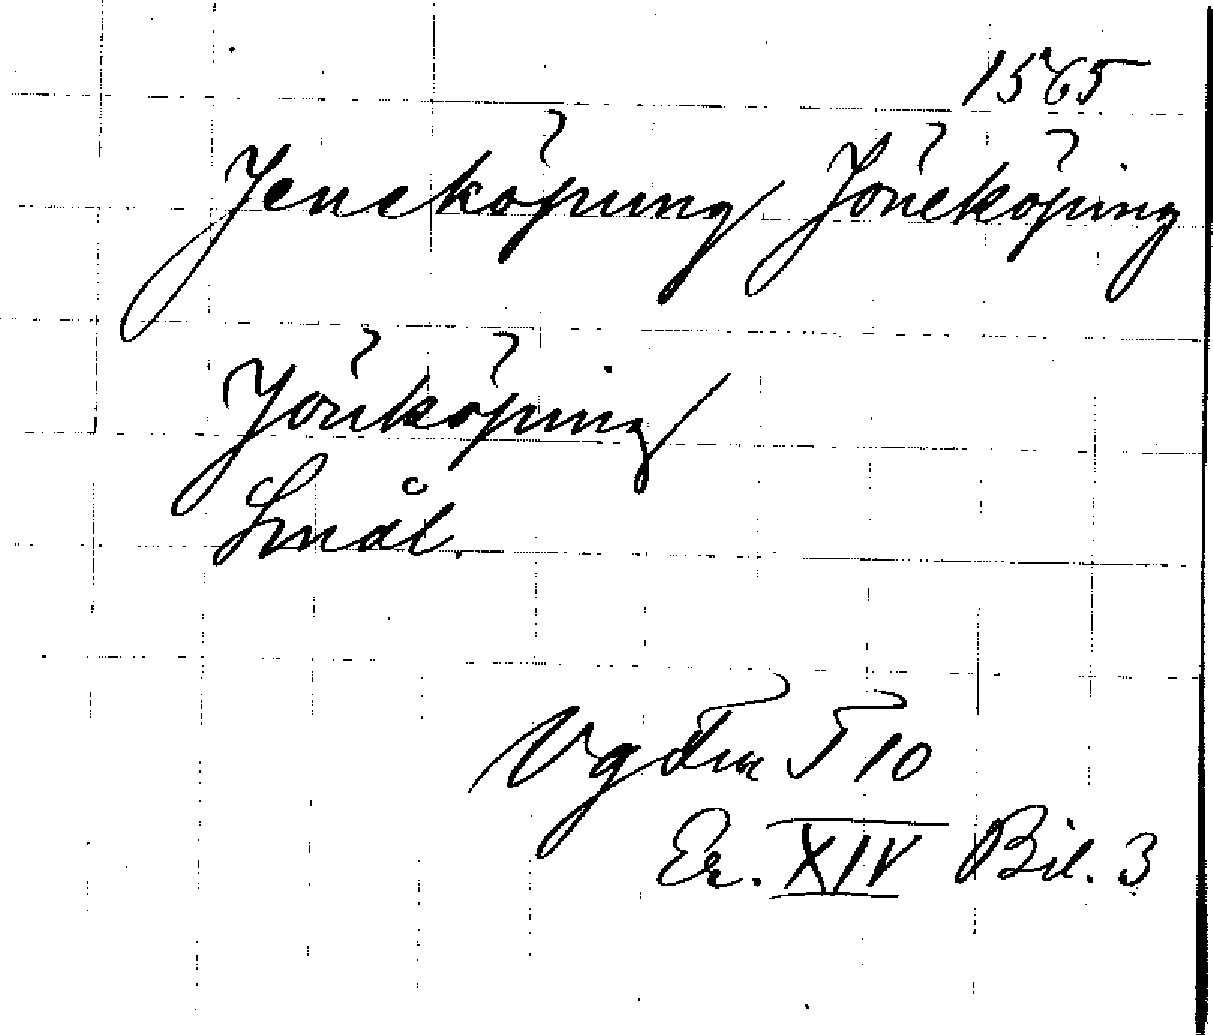 1565
Jeneköpung Jöneköping
Jönköping
Smål.
Vg 10
Er. XIV Bil. 3